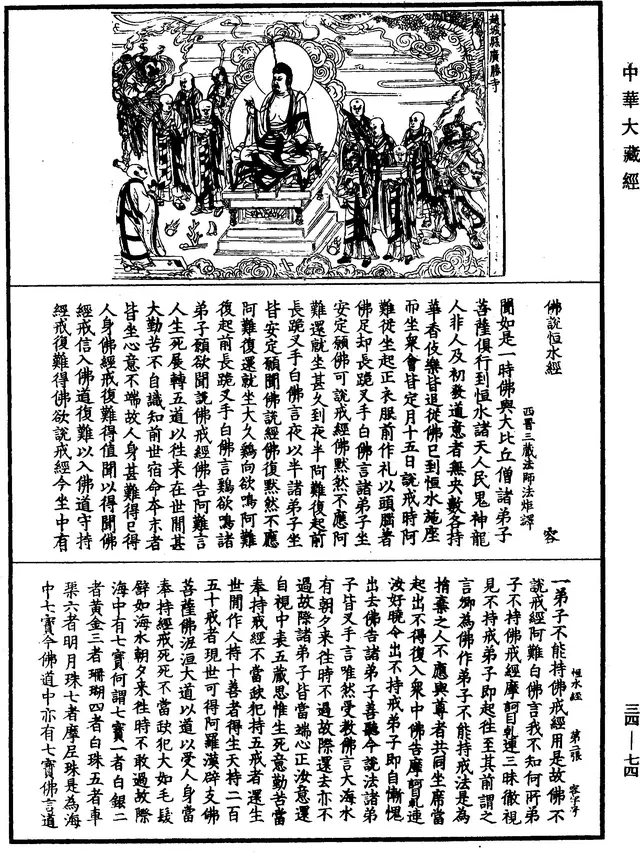 中華大藏經
趙城縣廣勝寺
佛說恒水經
西晉三藏法師法炬譯 容
聞如是一時佛與大比丘僧諸弟子
菩薩俱行到恒水諸天人民鬼神龍
人非人及初發道意者無央數各持
華香伎樂皆追從佛已到恒水施座
而坐衆會皆定月十五日說戒時阿
難從坐起正衣服前作礼以頭腦著
佛足却長跪叉手白佛言諸弟子坐
安定願佛可說戒經佛默然不應阿
難還就坐甚久到夜半阿難復起前
長跪叉手白佛言夜以半諸弟子坐
皆安定願聞佛說經佛復默然不應
阿難復還就坐大久鷄向欲鳴阿難
復起前長跪叉手白佛言鷄欲鳴諸
弟子願欲聞說佛戒經佛告阿難言
人生死展轉五道以往来在世間甚
大勤苦不自識知前世宿命本末者
皆坐心意不端故人身甚難得已得
人身佛經戒復難得值聞以得聞佛
經戒信入佛道復難以入佛道守持
經戒復難得佛欲說戒經今坐中有
恒水經 第二張 容字号
一弟子不能持佛戒經用是故佛不
說戒經阿難白佛言我不知何所弟
子不持佛戒經摩訶目乹連三昧徹視
見不持戒弟子即起往至其前謂之
言卿為佛作弟子不能持戒法是為
捐棄之人不應與尊者共同坐席當
起出不得復入衆中佛告摩訶目乹連
汝好曉令出不持戒弟子即自慚愧
出去佛告諸弟子善聽今說法諸弟
子皆叉手言唯然受教佛言大海水
有朝夕来往時不過故際還去亦不
過故際諸弟子皆當端心正汝意還
自視中表五藏思惟生死意勤苦當
奉持戒經不當缺犯持五戒者還生
世間作人持十善者得生天持二百
五十戒者現世可得阿羅漢辟支佛
菩薩佛泥洹大道以道以受人身當
奉持經戒死死不當缺犯大如毛髮
辟如海水朝夕来往時不敢過故際
海中有七寶何謂七寶一者白銀二
者黃金三者珊瑚四者白珠五者車
渠六者明月珠七者摩尼珠是為海
中七寶今佛道中亦有七寶佛言道
三四—七四